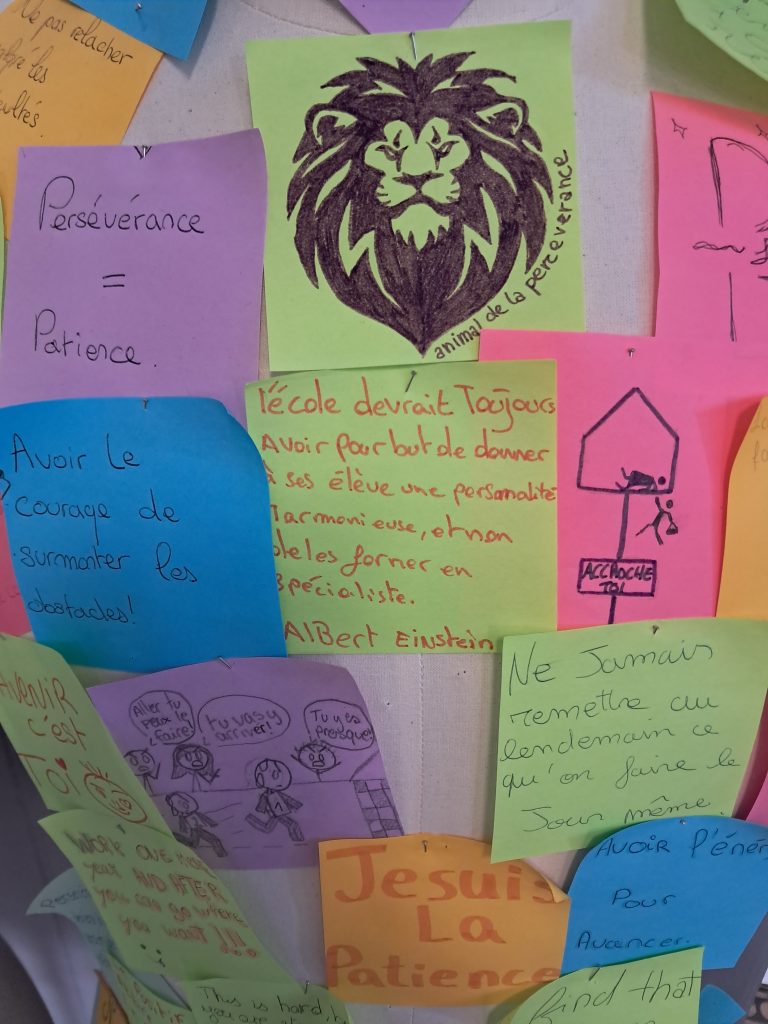 Ne pas relacher
les
Persévérance
=
Patience.
animal de la perceverance
Avoir Le
courage de
surmonter les
obstacles!
l'école devrait Toujours
Avoir pour but de donner
à ses élève une personalité
Harmonieuse, et non
de les former en
spécialiste.
AlBert EINSTEIN
ACCROCHE
TOI
AVENIR
c'est
TOi
Aller tu
peux le
faire!
tu vas y
arriver!
Tu y es
presque!
Ne Jamais
remettre au
lendemain ce
qu'on faire le
Jour même.
WORK ONE MORE
year AND AFTER
you can go where
you want !!!!
Je suis
La
Patience
AVOIR l'éner
Pour
Avancer.
This is hard,
you are
find that